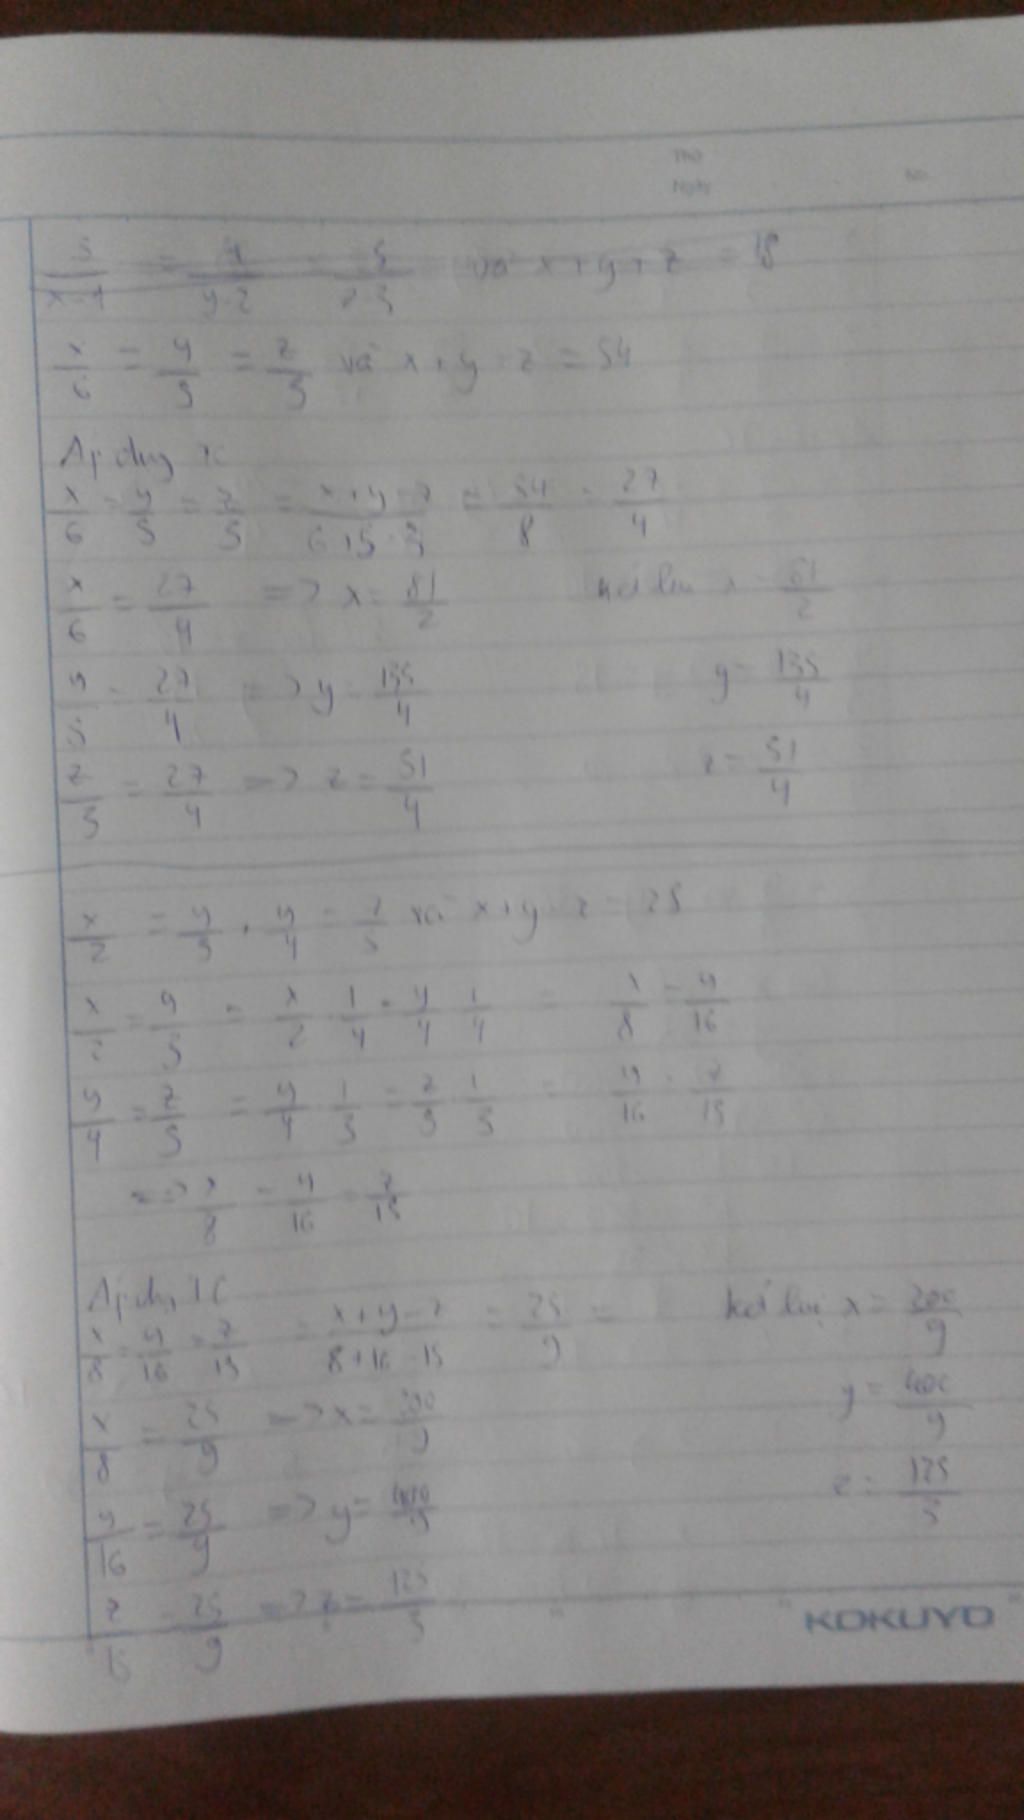 THỨ
NGÀY NO.
5/(x-1) = 4/(y-2) = 5/(z-3) và x+y+z = 18
x/6 = y/5 = z/3 và x+y-z = 54
Áp dụng TC
x/6 = y/5 = z/3 = (x+y-z)/(6+5-3) = 54/8 = 27/4
x/6 = 27/4 => x = 81/2 kết luận x = 81/2
y/5 = 27/4 => y = 135/4 y = 135/4
z/3 = 27/4 => z = 51/4 z = 51/4
x/2 = y/3, y/4 = z/5 và x+y-z = 25
x/2 = y/3 = x/2 · 1/4 = y/4 · 1/4 = x/8 = y/16
y/4 = z/5 = y/4 · 1/3 = z/5 · 1/3 = y/16 = z/15
=> x/8 = y/16 = z/15
Áp dụng TC
x/8 = y/16 = z/15 = (x+y-z)/(8+16-15) = 25/9 = kết luận x = 200/9
x/8 = 25/9 => x = 200/9 y = 400/9
y/16 = 25/9 => y = 400/9 z = 125/3
z/15 = 25/9 => z = 125/3
KOKUYO